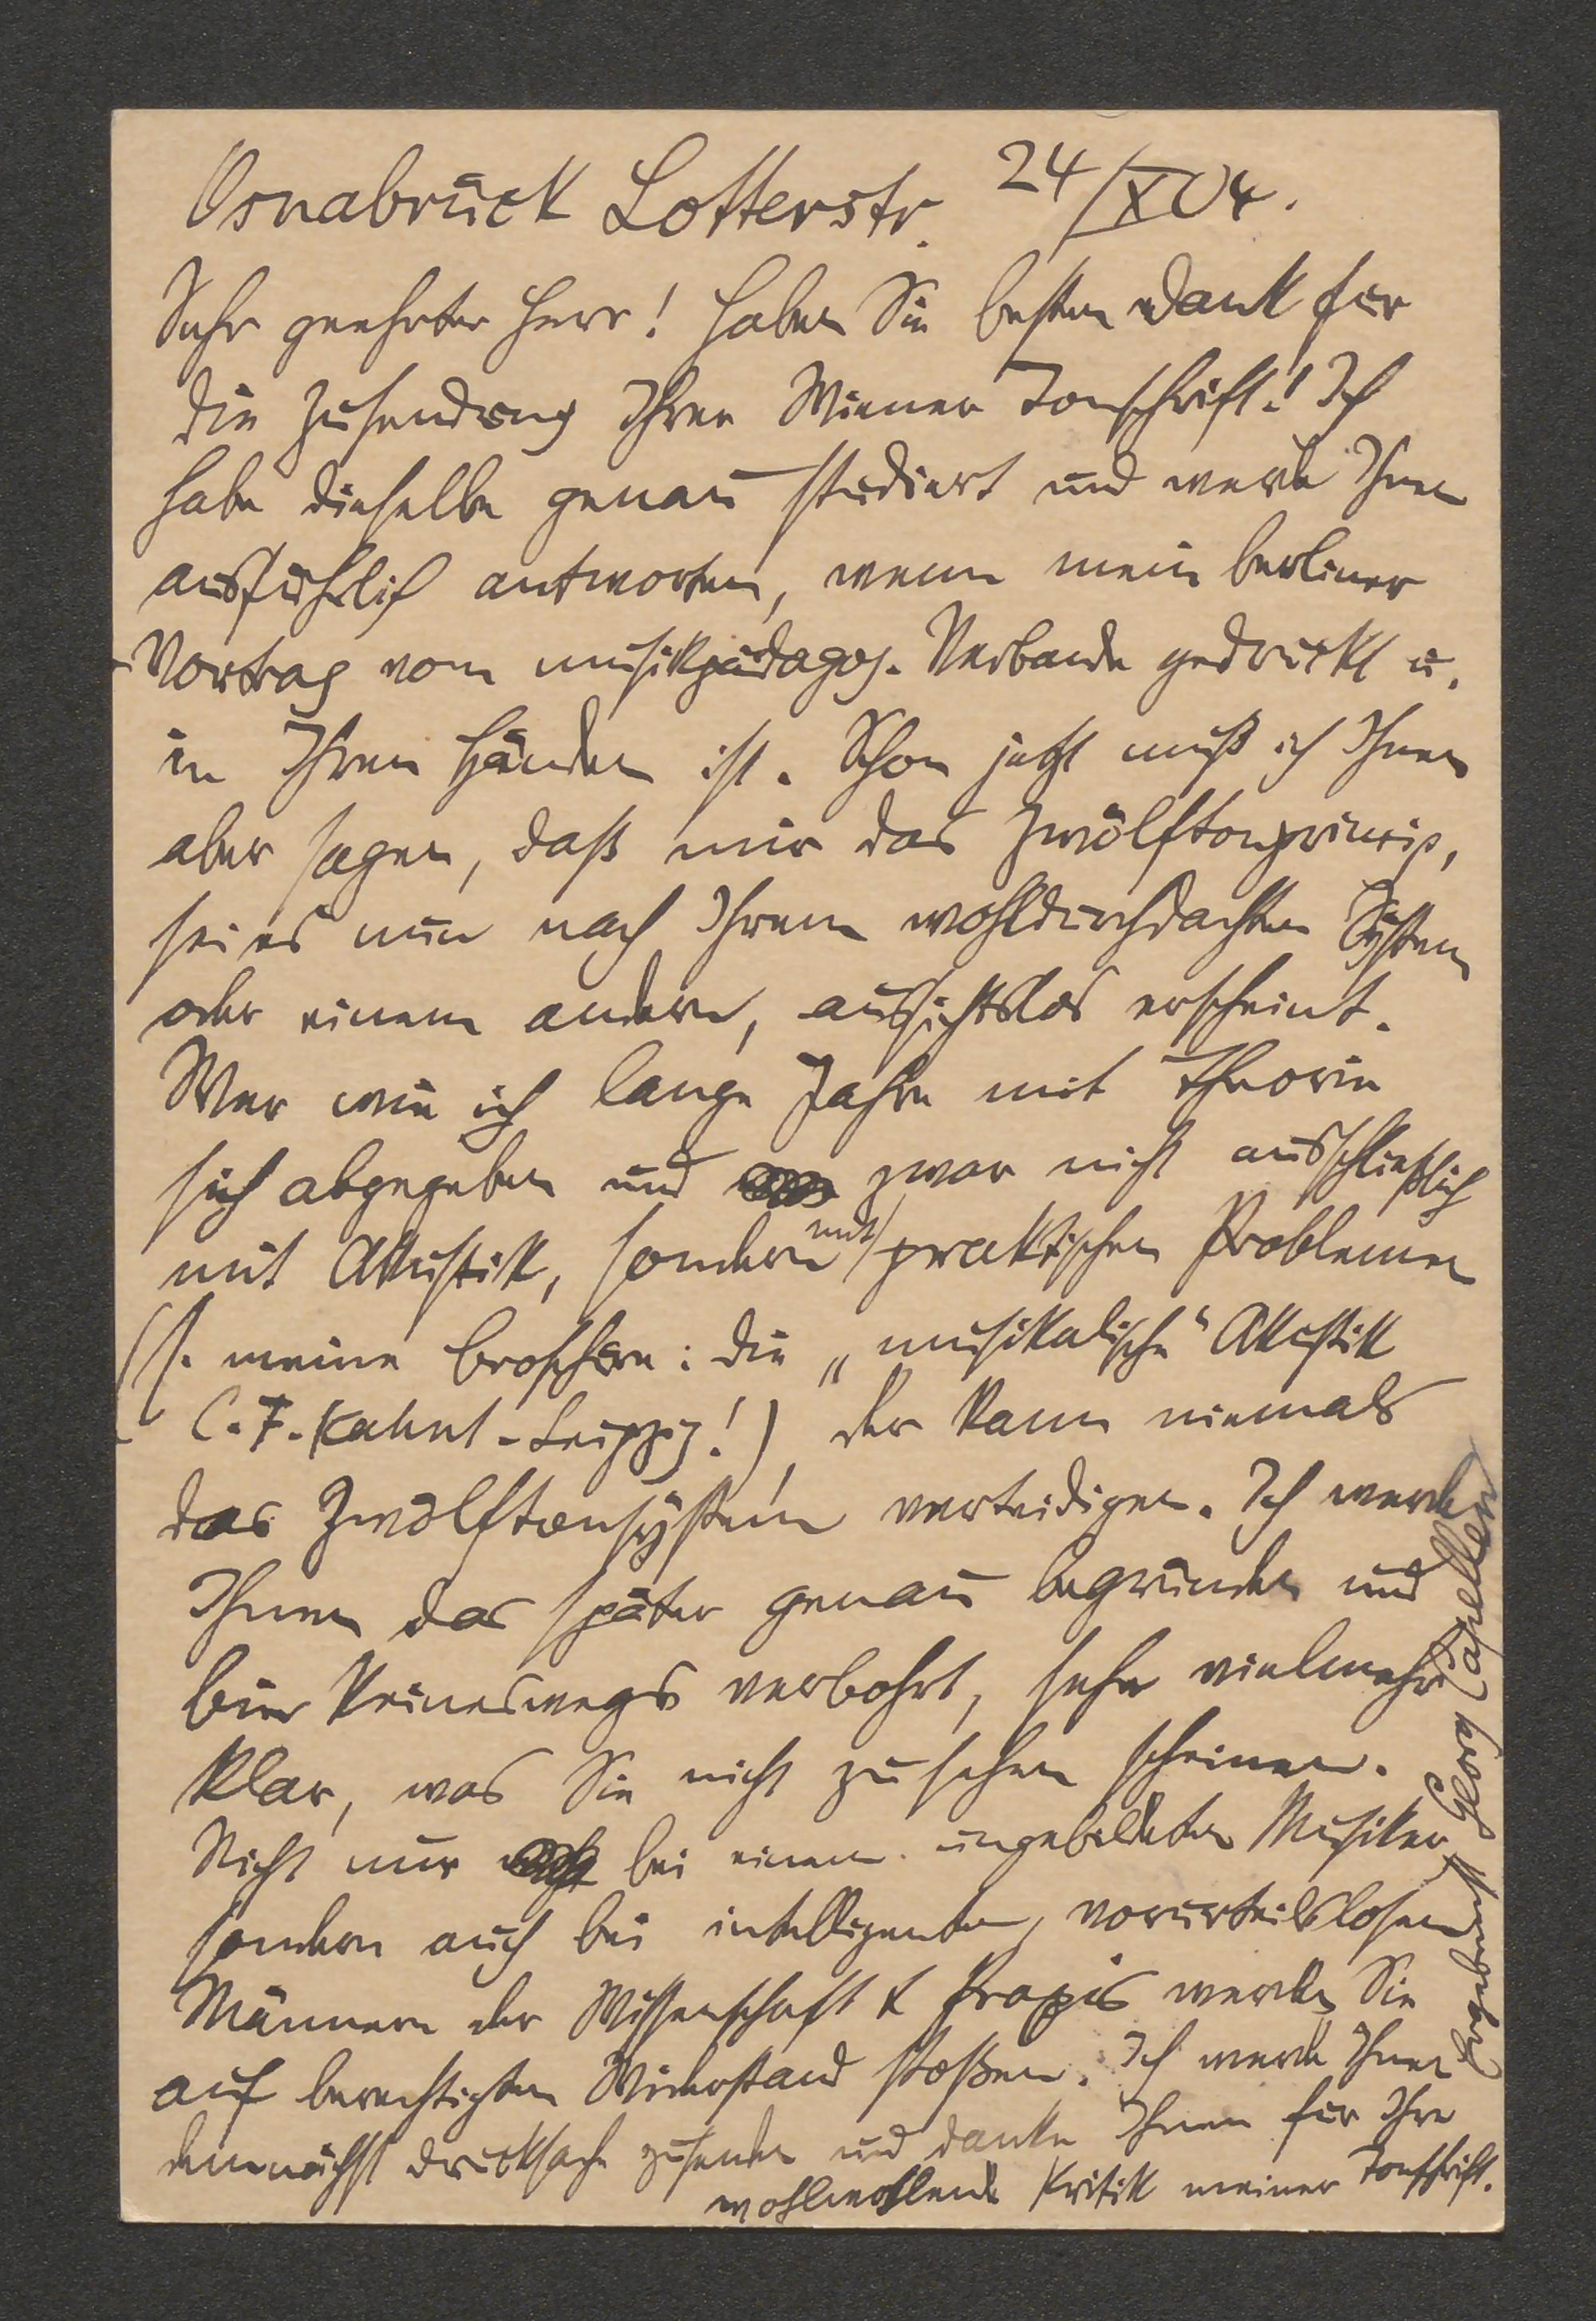 Osnabrück Lotterstr. 24/X 04.
Sehr geehrter Herr! Haben Sie besten Dank für
die Zusendung Ihrer Wiener Tonschrift! Ich
habe dieselbe genau studiert und werde Ihnen
ausführlich antworten, wenn mein berliner
Vortrag vom musikpädagog. Verbande gedruckt u.
in Ihren Händen ist. Schon jetzt muß ich Ihnen
aber sagen, daß mir das Zwölftonprincip,
sei es nun nach Ihrem wohldurchdachten System
oder einem andern, aussichtslos erscheint.
Wer wie ich lange Jahre mit Theorie
sich abgegeben und zwar nicht ausschließlich
mit Akustik, sondern mit praktischen Problemen
(s. meine Broschüre: die „musikalische“ Akustik
C. F. Kahnt-Leipzig!), der kann niemals
das Zwölftonsystem verteidigen. Ich werde
Ihnen das später genau begründen und
bin keineswegs verbohrt, sehe vielmehr
klar, was Sie nicht zu sehen scheinen.
Nicht nur bei einem ungebildeten Musiker,
sondern auch bei intelligenten, vorurteilslosen
Männern der Wissenschaft & Praxis werden Sie
auf berechtigten Widerstand stoßen. Ich werde Ihnen
demnächst Drucksache zusenden und danke Ihnen für Ihre
wohlwollende Kritik meiner Tonschrift.
Ergebenst Georg Capellen